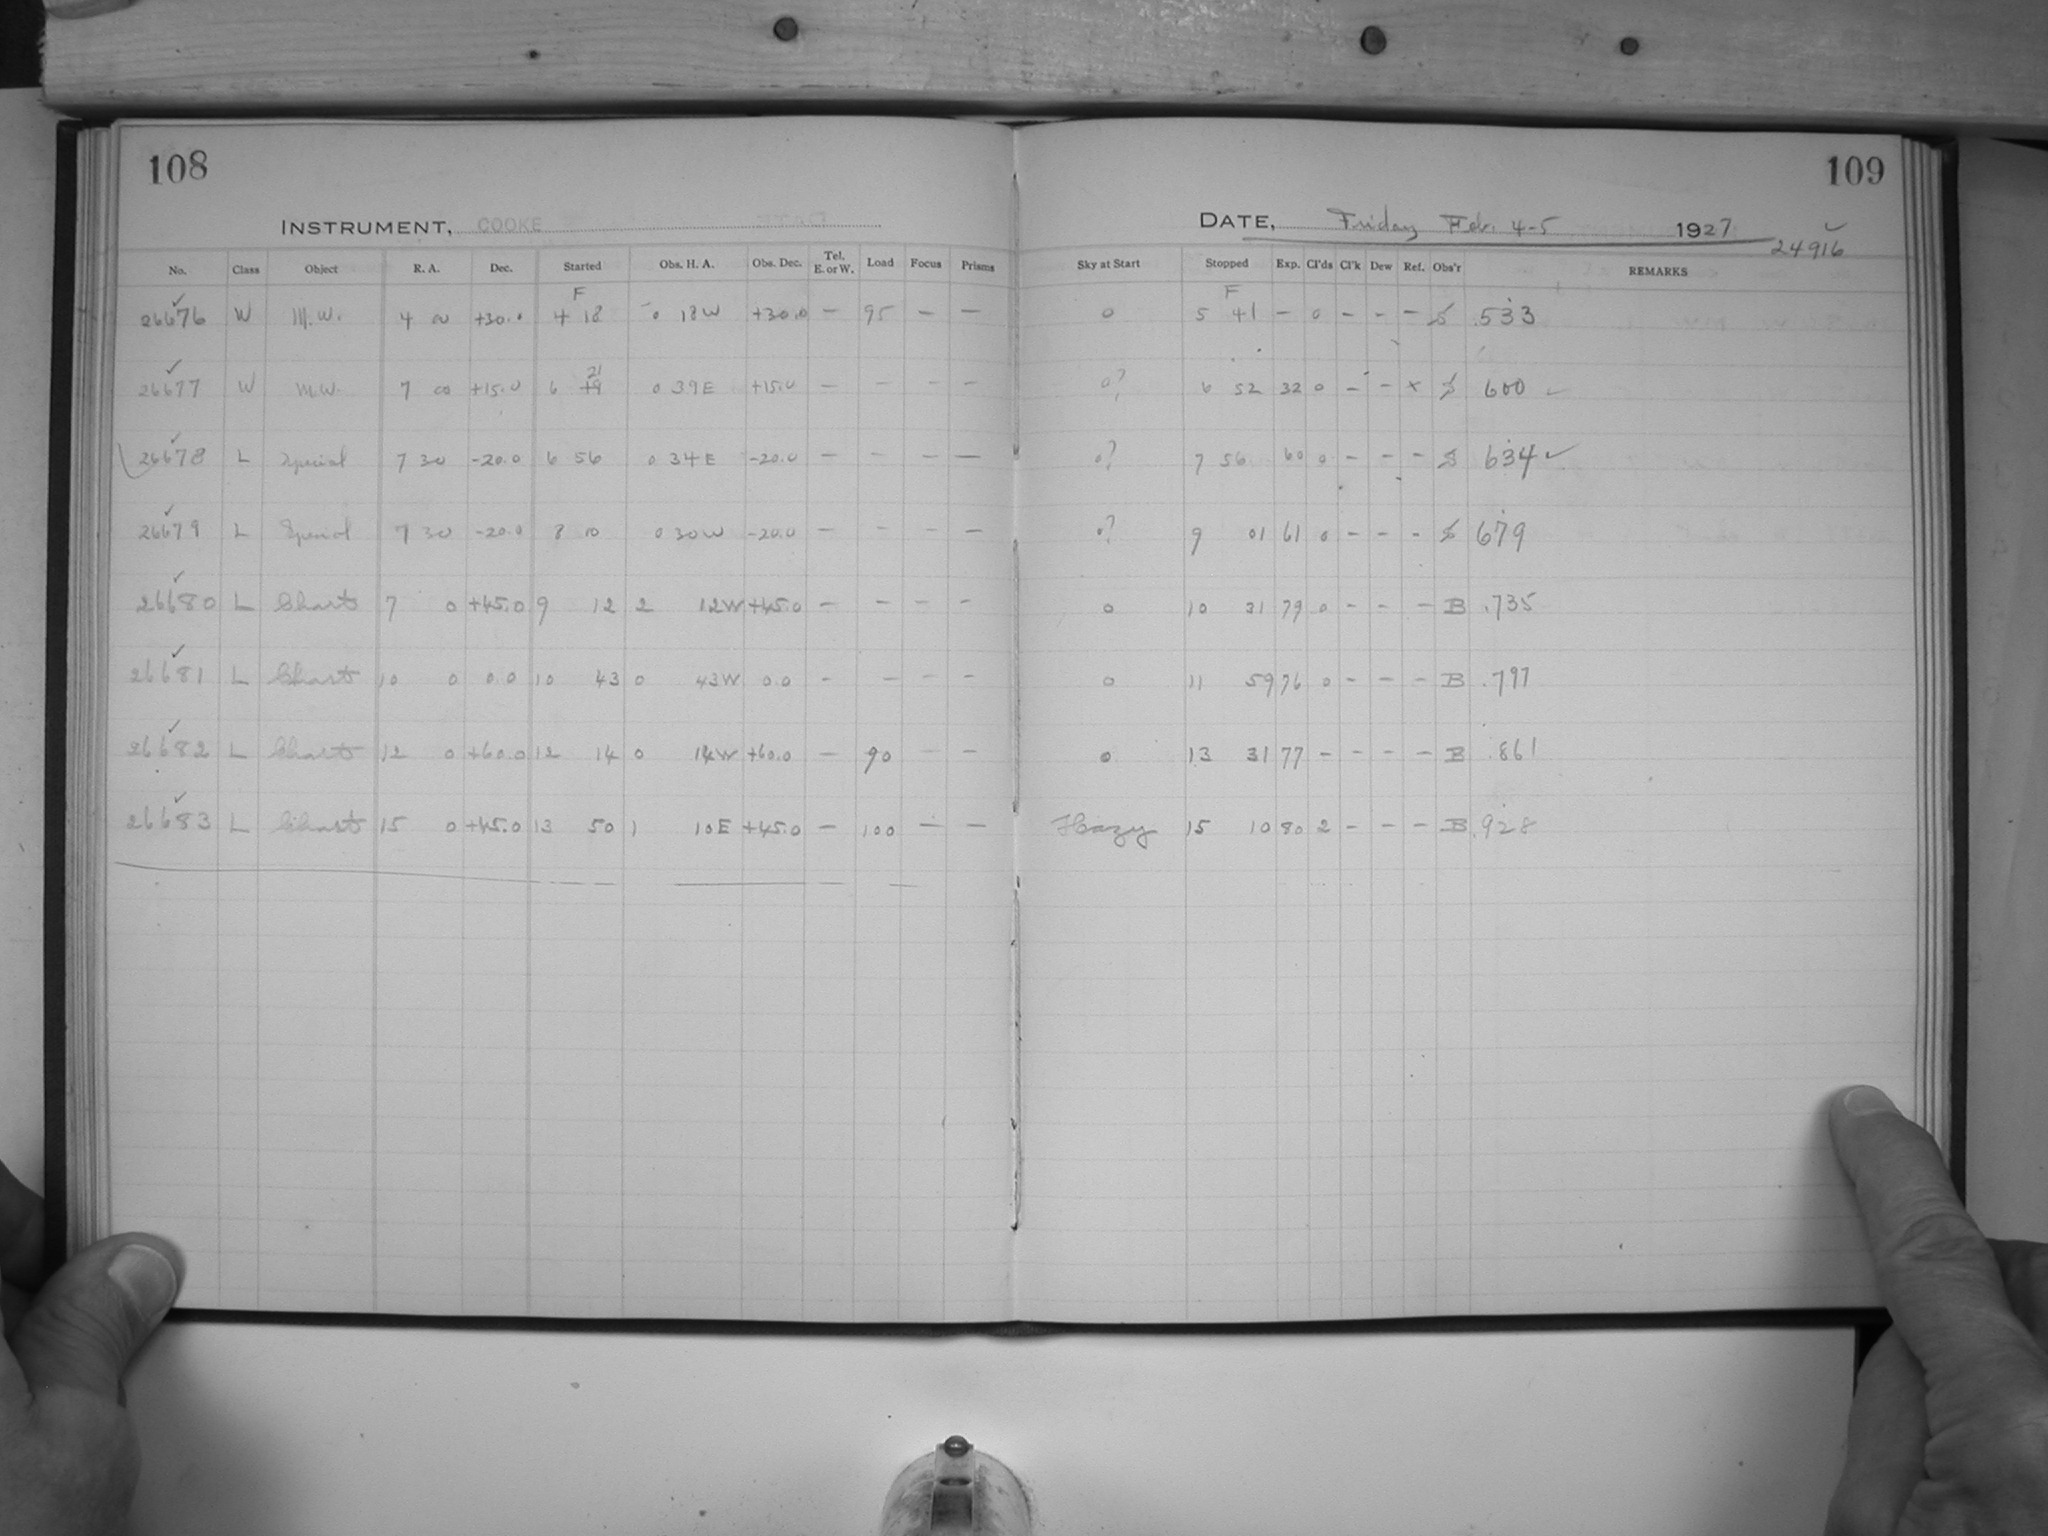 108
INSTRUMENT, COOKE
No. Class Object R. A. Dec. Started Obs. H. A. Obs. Dec. Tel. E. or W. Load Focus Prisms
F
26676 W M.W. 4 00 +30.0 4 18 0 18W +30.0 — 95 — —
21
26677 W M.W. 7 00 +15.0 6 19 0 39E +15.0 — — — —
26678 L Special 7 30 -20.0 6 56 0 34E -20.0 — — — —
26679 L Special 7 30 -20.0 8 10 0 30W -20.0 — — — —
26680 L Charts 7 0 +45.0 9 12 2 12W +45.0 — — — —
26681 L Charts 10 0 0.0 10 43 0 43W 0.0 - — — —
26682 L Charts 12 0 +60.0 12 14 0 14W +60.0 — 90 — —
26683 L Charts 15 0 +45.0 13 50 1 10E +45.0 — 100 — —
109
DATE, Friday Feb. 4-5 1927
24916
Sky at Start Stopped Exp. Cl'ds Cl'k Dew Ref. Obs'r REMARKS
F
0 5 41 — 0 — — — S .533
0? 6 52 32 0 — — x S 600
0? 7 56 60 0 — — — S 634
0? 9 01 61 0 — — - S 679
0 10 31 79 0 — — — B .735
0 11 59 76 0 — — — B .797
0 13 31 77 — — — — B .861
Hazy 15 10 80 2 — — — B .928